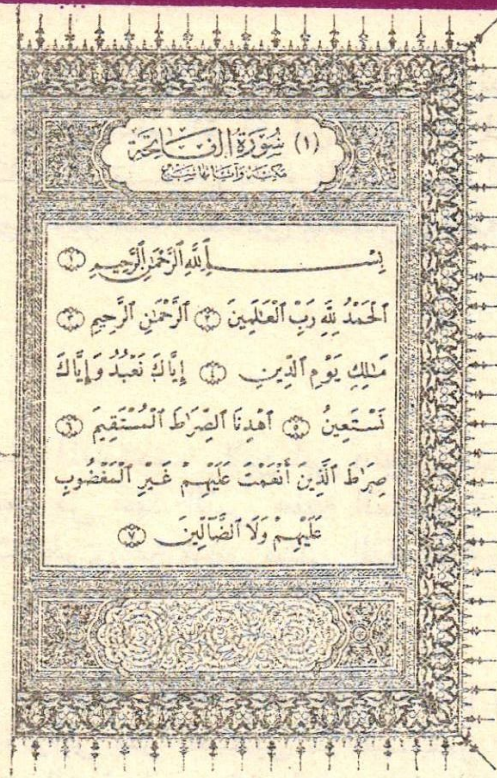 (١) سُورَةُ الفَاتِحَة
مَكيَّة وَآيَاتُهَا سَبْع
بِسْمِ اللَّهِ الرَّحْمَٰنِ الرَّحِيمِ ١
الْحَمْدُ لِلَّهِ رَبِّ الْعَالَمِينَ ٢ الرَّحْمَٰنِ الرَّحِيمِ ٣
مَالِكِ يَوْمِ الدِّينِ ٤ إِيَّاكَ نَعْبُدُ وَإِيَّاكَ
نَسْتَعِينُ ٥ اهْدِنَا الصِّرَاطَ الْمُسْتَقِيمَ ٦
صِرَاطَ الَّذِينَ أَنْعَمْتَ عَلَيْهِمْ غَيْرِ الْمَغْضُوبِ
عَلَيْهِمْ وَلَا الضَّالِّينَ ٧